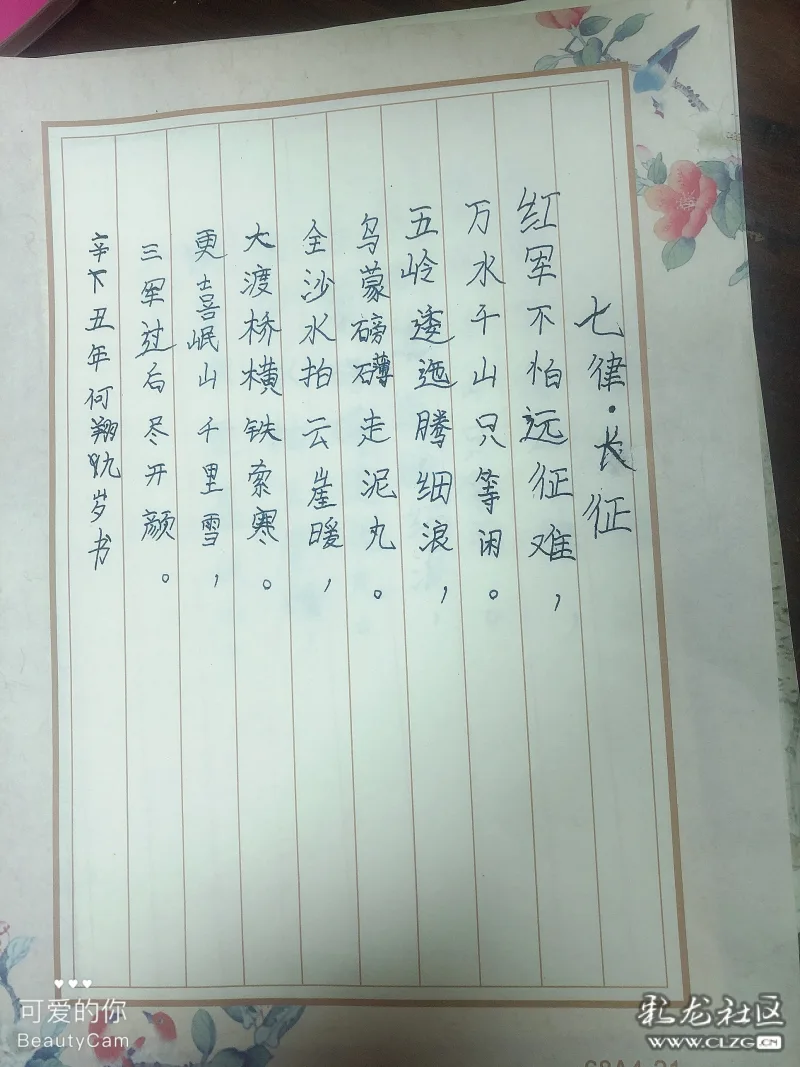 七律·长征
红军不怕远征难，
万水千山只等闲。
五岭逶迤腾细浪，
乌蒙磅礴走泥丸。
金沙水拍云崖暖，
大渡桥横铁索寒。
更喜岷山千里雪，
三军过后尽开颜。
辛丑年何翔 岁书
可爱的你
BeautyCam
彩龙社区
WWW.CLZG.CN